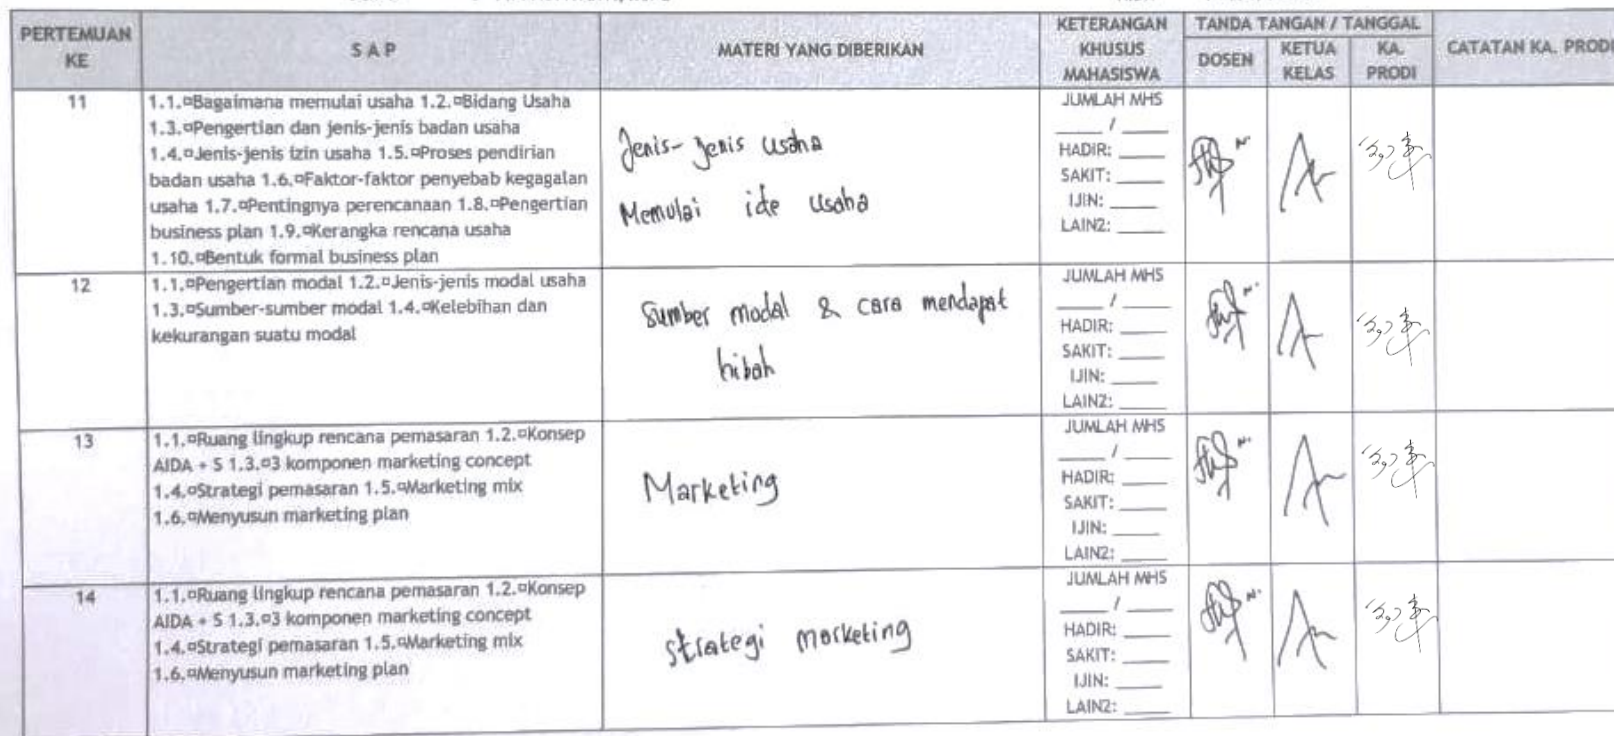 PERTEMUAN KE
S A P
MATERI YANG DIBERIKAN
KETERANGAN KHUSUS MAHASISWA
TANDA TANGAN / TANGGAL
DOSEN
KETUA KELAS
KA. PRODI
CATATAN KA. PRODI
11
1.1.¤Bagaimana memulai usaha 1.2.¤Bidang Usaha
1.3.¤Pengertian dan jenis-jenis badan usaha
1.4.¤Jenis-jenis izin usaha 1.5.¤Proses pendirian
badan usaha 1.6.¤Faktor-faktor penyebab kegagalan
usaha 1.7.¤Pentingnya perencanaan 1.8.¤Pengertian
business plan 1.9.¤Kerangka rencana usaha
1.10.¤Bentuk formal business plan
Jenis-jenis usaha
Memulai ide usaha
JUMLAH MHS
____ / ____
HADIR: ____
SAKIT: ____
IJIN: ____
LAIN2: ____
12
1.1.¤Pengertian modal 1.2.¤Jenis-jenis modal usaha
1.3.¤Sumber-sumber modal 1.4.¤Kelebihan dan
kekurangan suatu modal
Sumber modal & cara mendapat
hibah
JUMLAH MHS
____ / ____
HADIR: ____
SAKIT: ____
IJIN: ____
LAIN2: ____
13
1.1.¤Ruang lingkup rencana pemasaran 1.2.¤Konsep
AIDA + S 1.3.¤3 komponen marketing concept
1.4.¤Strategi pemasaran 1.5.¤Marketing mix
1.6.¤Menyusun marketing plan
Marketing
JUMLAH MHS
____ / ____
HADIR: ____
SAKIT: ____
IJIN: ____
LAIN2: ____
14
1.1.¤Ruang lingkup rencana pemasaran 1.2.¤Konsep
AIDA + S 1.3.¤3 komponen marketing concept
1.4.¤Strategi pemasaran 1.5.¤Marketing mix
1.6.¤Menyusun marketing plan
strategi marketing
JUMLAH MHS
____ / ____
HADIR: ____
SAKIT: ____
IJIN: ____
LAIN2: ____